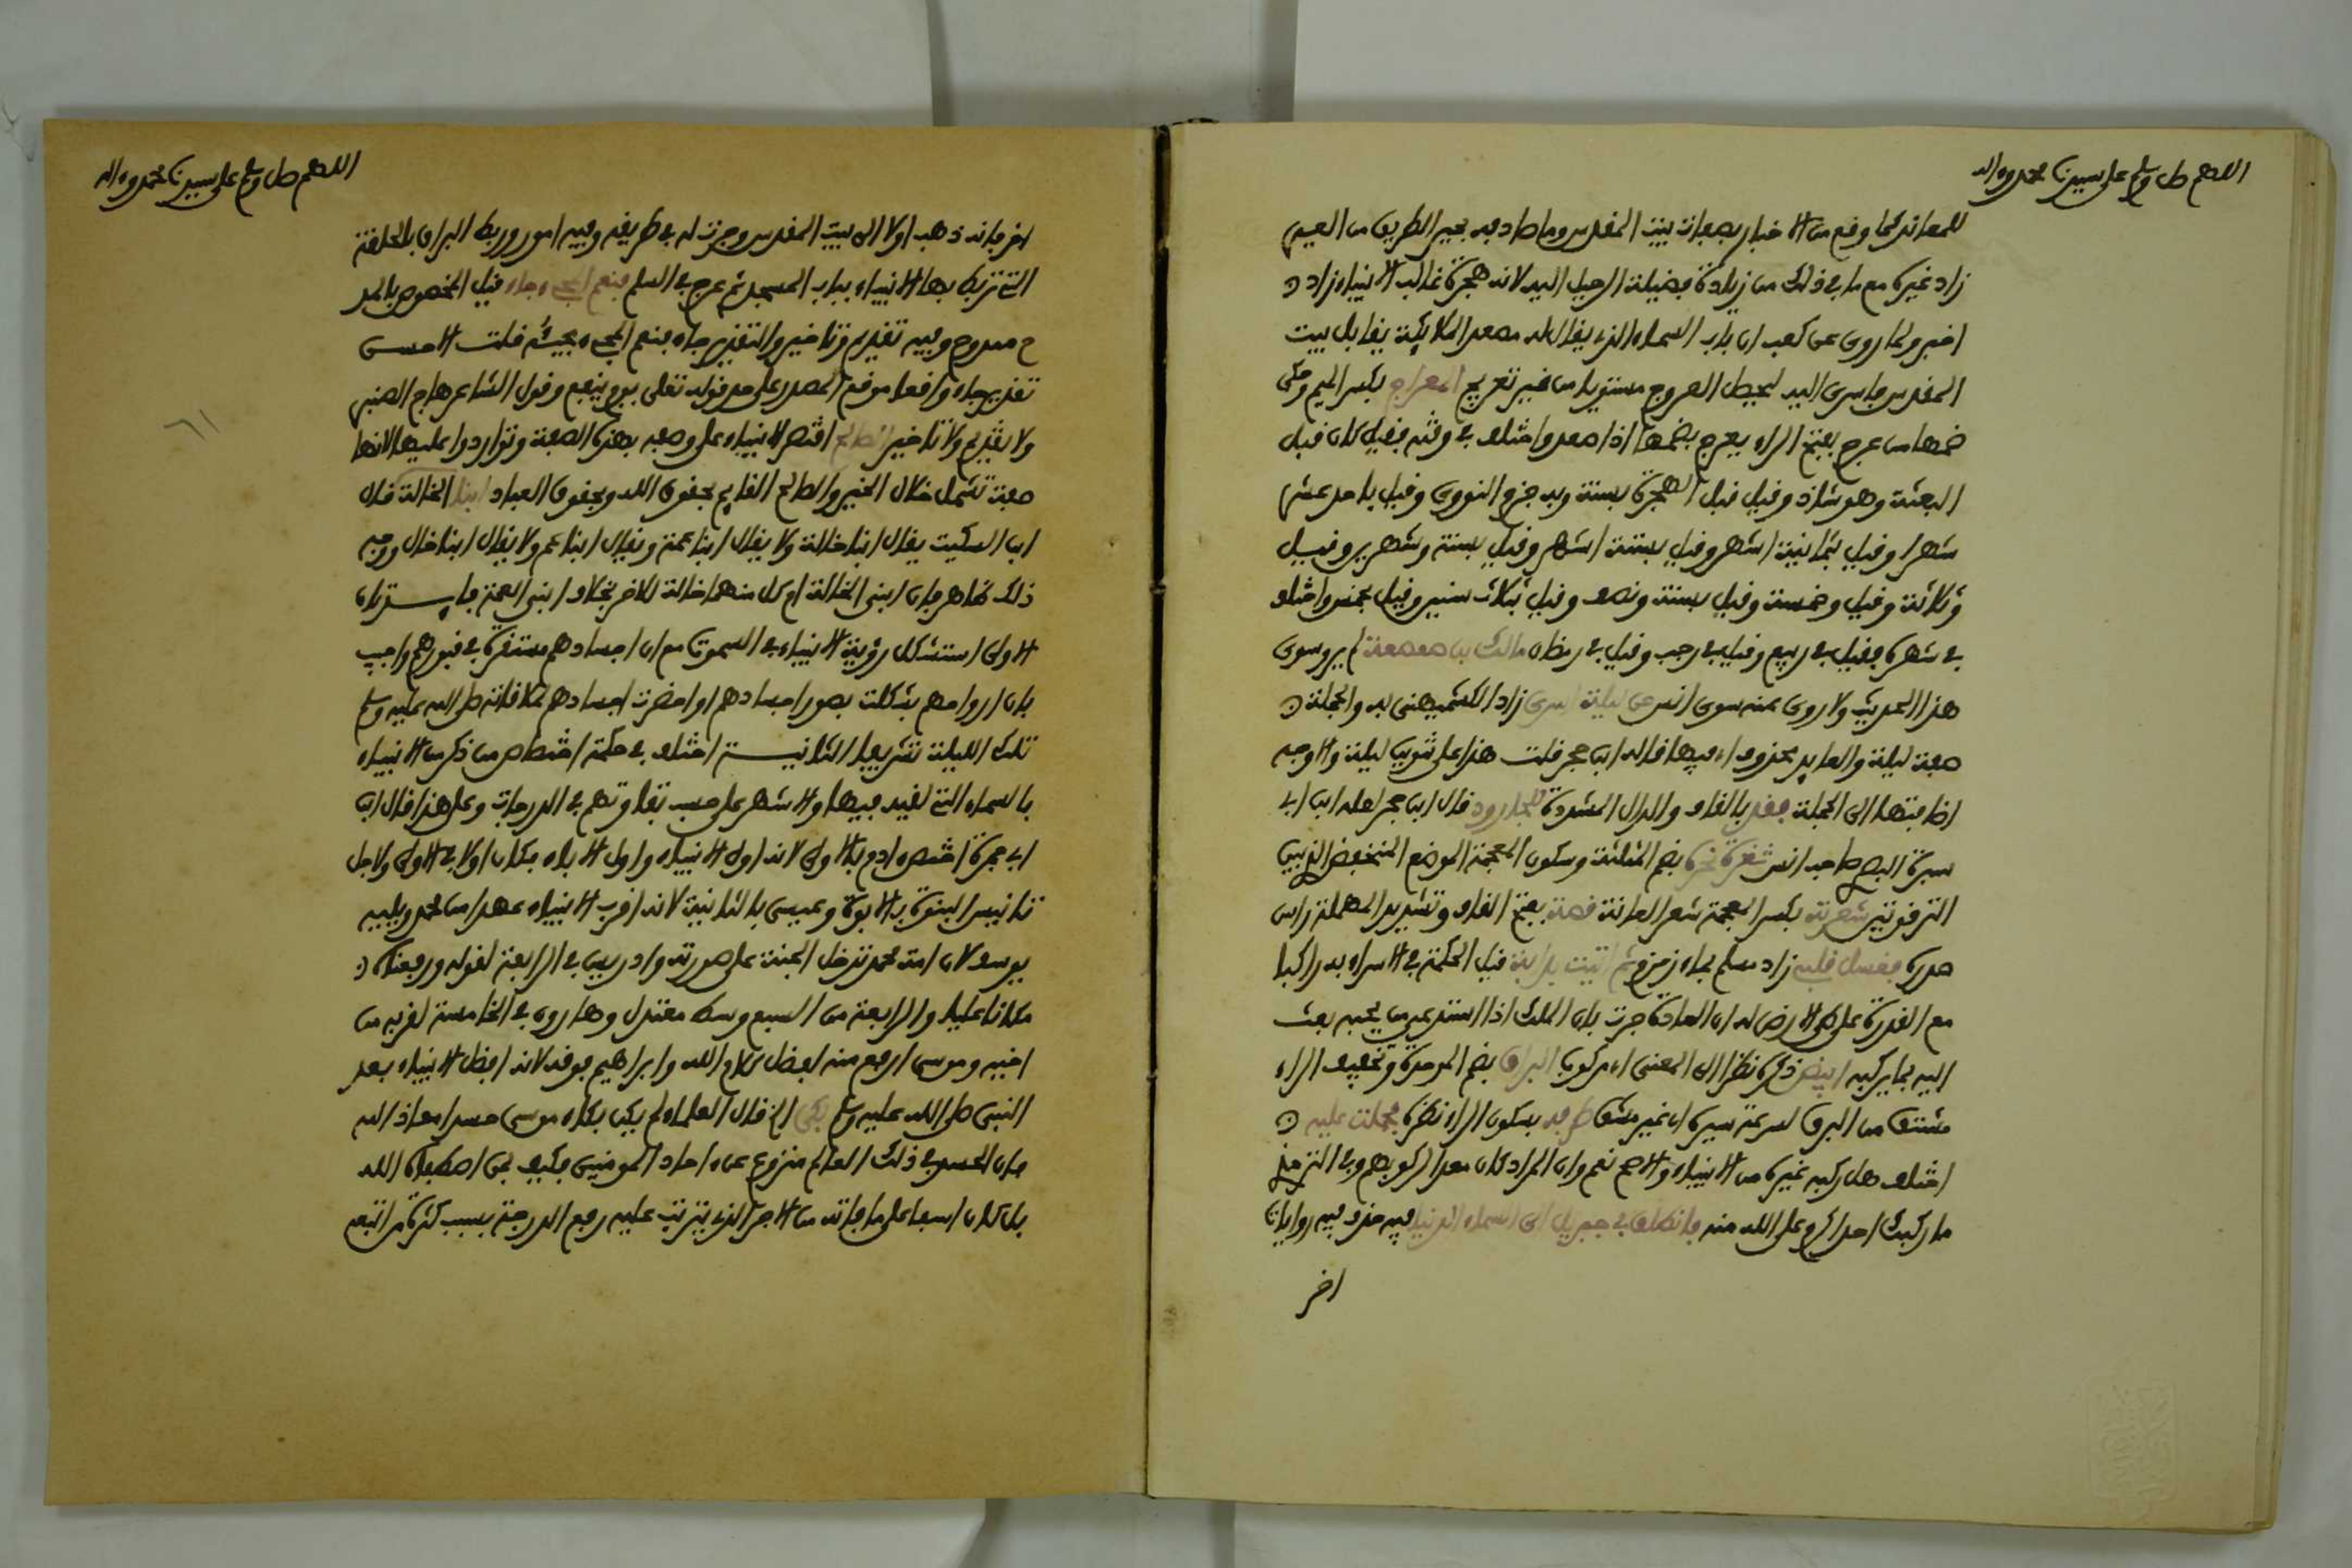 اللهم صل وسلم على سيدنا محمد وءاله
للمعاند لما وقع من الاخبار بصفات بيت المقدس وما صادفه بعير الطريق من العير
زاد غيره مع ما في ذلك من زيادة فضيلة الرحيل اليه لانه هجرة غالب الانبياء زاد
اخر ولما روى عن كعب ان باب السماء الذي يقال له مصعد الملايكة يقابل بيت
المقدس فاسرى اليه ليحصل العروج مستويا من غير تعريج المعراج بكسر الميم وحكى
ضمها من عرج بفتح الراء يعرج بضمها اذا صعد واختلف في وقته فقيل كان قبل
البعثة وهو شاذ وقيل قبل الهجرة بسنة وبه جزم النووي وقيل باحد عشر
شهرا وقيل بثمانية اشهر وقيل بستة اشهر وقيل بسنة وشهرين وقيل
وثلاثة وقيل وخمسة وقيل بسنة ونصف وقيل بثلاث سنين وقيل بخمس واختلف
في شهره فقيل في ربيع وقيل في رجب وقيل في رمضان مالك بن صعصعة لم يرو سوى
هذا الحديث ولا روى عنه سوى انس عن ليلة اسرى زاد الكشميهني به والجملة
صفة ليلة والعايد محذوف اي فيها قاله ابن حجر قلت هذا على تنوين ليلة والاوجه
اضافتها الى الجملة فقد بالقاف والدال المشددة للجارود قال ابن حجر لعله ابن ابي
سبرة البصري صاحب انس ثغرة نحره بضم المثلثة وسكون المعجمة الموضع المنخفض الذي بين
الترقوتين شعرته بكسر المعجمة شعر العانة قصه بفتح القاف وتشديد المهملة راس
صدره فغسل قلبه زاد مسلم بماء زمزم ثم اتيت بدابة قيل الحكمة في الاسراء به راكبا
مع القدرة على طي الارض له ان العادة جرت بان الملك اذا استدعى من يحبه بعث
اليه بما يركبه ابيض ذكره نظرا الى المعنى اي مركوب البراق بضم الموحدة وتخفيف الراء
مشتق من البرق لسرعة سيره او غير مشتق طرفه بسكون الراء نظره فحملت عليه
اختلف هل ركبه غيره من الانبياء والاصح نعم وان المراد كان معدا لركوبهم وفي الترمذي
ما ركبك احد اكرم على الله منه فانطلق بي جبريل الى السماء الدنيا فيه حذف فيه روايات
اخر
اللهم صل وسلم على سيدنا محمد وءاله
اخر فانه ذهب اولا الى بيت المقدس وجرت له في طريقه وفيه امور وربط البراق بالحلقة
التي تربط بها الانبياء بباب المسجد ثم عرج في السلم فنعم المجيء جاء قيل المخصوص بالمد
ح ممدوح وفيه تقديم وتاخير والتقدير جاء فنعم المجيء مجيئه قلت الاحسن
تقدير جاء واقعا موقع المصدر على حد قوله تعلى يوم ينفع وقول الشاعر هاج الصنبر
ولا تقديم ولا تاخير الصالح اقتصر الانبياء على وصفه بهذه الصفة وتواردوا عليها لانها
صفة تشمل خلال الخير والصالح القايم بحقوق الله وبحقوق العباد ابنا الخالة قال
ابن السكيت يقال ابنا خالة ولا يقال ابنا عمة ويقال ابنا عم ولا يقال ابنا خال ووجه
ذلك ظاهر فان ابني الخالة ام كل منهما خالة للاخر بخلاف ابني العمة فايـــدتان
الاولى استشكل رؤية الانبياء في السموت مع ان اجسادهم مستقرة في قبورهم واجيب
بان ارواحهم تشكلت بصور اجسادهم او احضرت اجسادهم لملاقاته صلى الله عليه وسلم
تلك الليلة تشريفا الثانيـــة اختلف في حكمة اختصاص من ذكر من الانبياء
بالسماء التي لقيه فيها والاشهر على حسب تفاوتهم في الدرجات وعلى هذا قال ابن
ابي جمرة اختص ادم بالاولى لانه اول الانبياء واول الاباء فكان اولا في الاولى ولاجل
تانيس البنوة بالابوة وعيسى بالثانية لانه اقرب الانبياء عهدا من محمد ويليه
يوسف لان امة محمد تدخل الجنة على صورته وادريس في الرابعة لقوله ورفعناه
مكانا عليا والرابعة من السبع وسط معتدل وهارون في الخامسة لقربه من
اخيه وموسى ارفع منه لفضل كلام الله وابراهيم فوقه لانه افضل الانبياء بعد
النبي صلى الله عليه وسلم بكى الخ قال العلماء لم يكن بكاء موسى حسدا معاذ الله
فان الحسد في ذلك العالم منزوع عن ءاحاد المومنين فكيف بمن اصطفاه الله
بل كان اسفا على ما فاته من الاجر الذي يترتب عليه رفع الدرجة بسبب كثرة من اتبعه